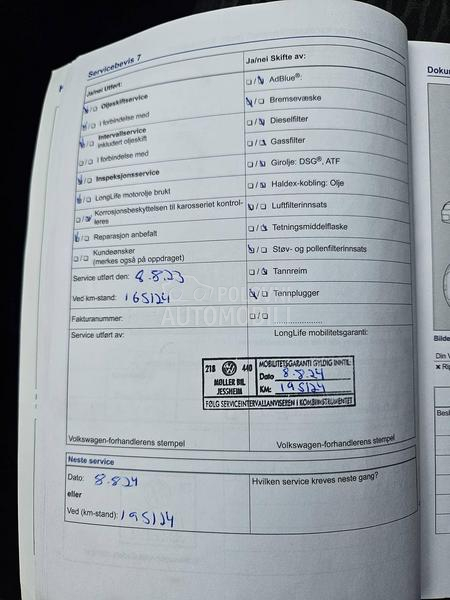 Servicebevis 7
Ja/nei Utført:
Oljeskiftservice
I forbindelse med
Intervallservice
inkludert oljeskift
I forbindelse med
Inspeksjonsservice
LongLife motorolje brukt
Korrosjonsbeskyttelsen til karosseriet kontrol-
leres
Reparasjon anbefalt
Kundeønsker
(merkes også på oppdraget)
Service utført den: 8.8.23
Ved km-stand: 165124
Fakturanummer:
Ja/nei Skifte av:
AdBlue®:
Bremsevæske
Dieselfilter
Gassfilter
Girolje: DSG®, ATF
Haldex-kobling: Olje
Luftfilterinnsats
Tetningsmiddelflaske
Støv- og pollenfilterinnsats
Tannreim
Tennplugger
Service utført av:
LongLife mobilitetsgaranti:
218 440
MØLLER BIL
JESSHEIM
MOBILITETSGARANTI GYLDIG INNTIL:
Dato 8.8.24
KM: 195124
FØLG SERVICEINTERVALLANVISEREN I KOMBIINSTRUMENTET
Volkswagen-forhandlerens stempel
Volkswagen-forhandlerens stempel
Neste service
Dato: 8.8.24
eller
Ved (km-stand): 195124
Hvilken service kreves neste gang?
POLOVNI
AUTOMOBILI
Dokum
Bilde
Din V